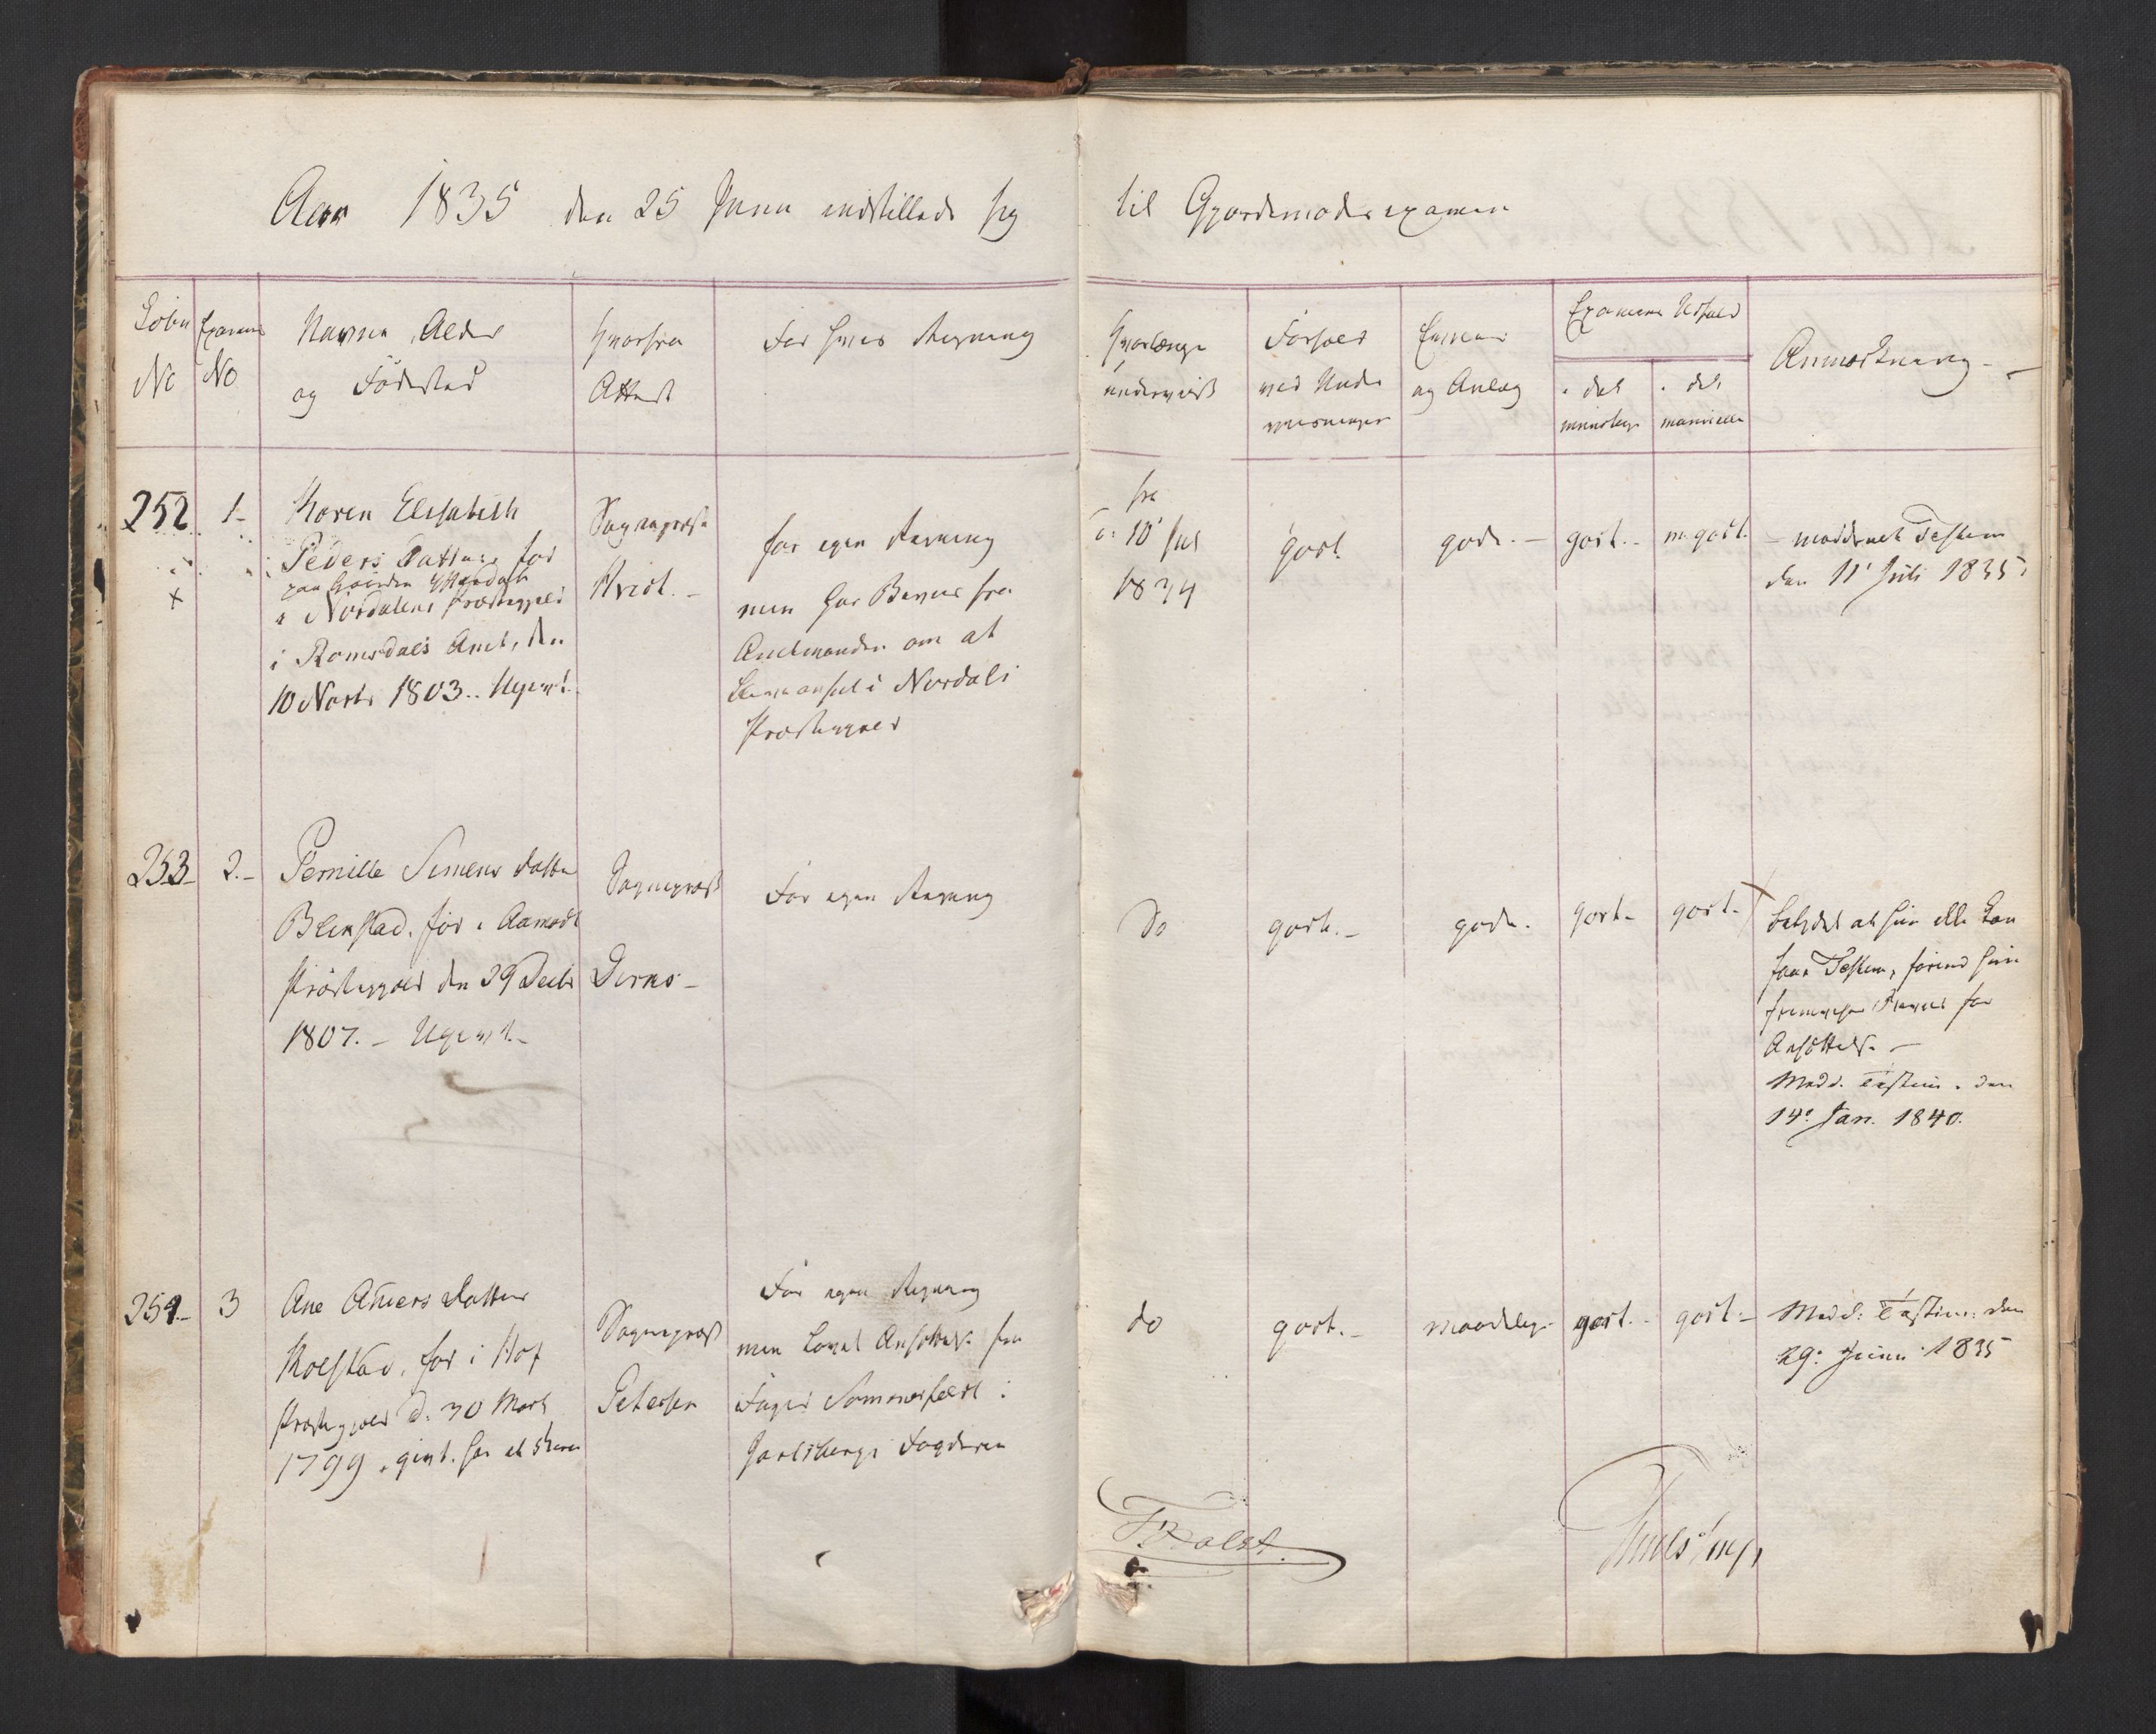 Aar 1835 den 25 Juni indstillede sig til Gjordemoderexamen
Løbe No
Examens No
Navne, Alder
og Fødested
Hvorfra
Attest
For hvis Regning
Hvorlænge
underviist
Forhold
ved Under
viisningen
Evner
og Anlæg
Examens Udfald
i det
mundtlige
i det
manuelle
Anmærkning
252
1
Karen Elisabeth
Peders Datter, fød
paa
i Nordalens Præstegjeld
i Romsdals Amt, den
10 Novbr 1803. Ugivt.
Sognepræst
Hvidt.
for egen Regning
men har Beviis fra
Amtmanden om at
i Nordals
Præstegjeld
fra
10 Jul
1834
godt
gode.
godt.
m. godt.
meddeelt Testim
den 11 Juli 1835.
x
253
2.
Pernille Simens datter
Blekstad, fød i Aamodt
Præstegjeld den 29 Decbr
1807. Ugivt.
Sognepræst
Dirks
For egen Regning
Do
godt.
gode.
godt
godt.
betydet at hun ikke kan
faae Testim, førend hun
fremviser Beviis for
Ansættelse
Medd. Testim. den
14. Jan. 1840.
254
3
Ane Anders Datter
Kolstad, fød i Hof
Præstegjeld d. 30 Marts
1799, givt. har et Barn
Sognepræst
Petersen
For egen Regning
men lovet Ansættelse fra
Foged Sommerfeldt i
Jarlsbergs Fogderie
do
godt.
maadelige
godt.
godt.
Medd. Testim. den
29. Juni 1835
F. Holst.